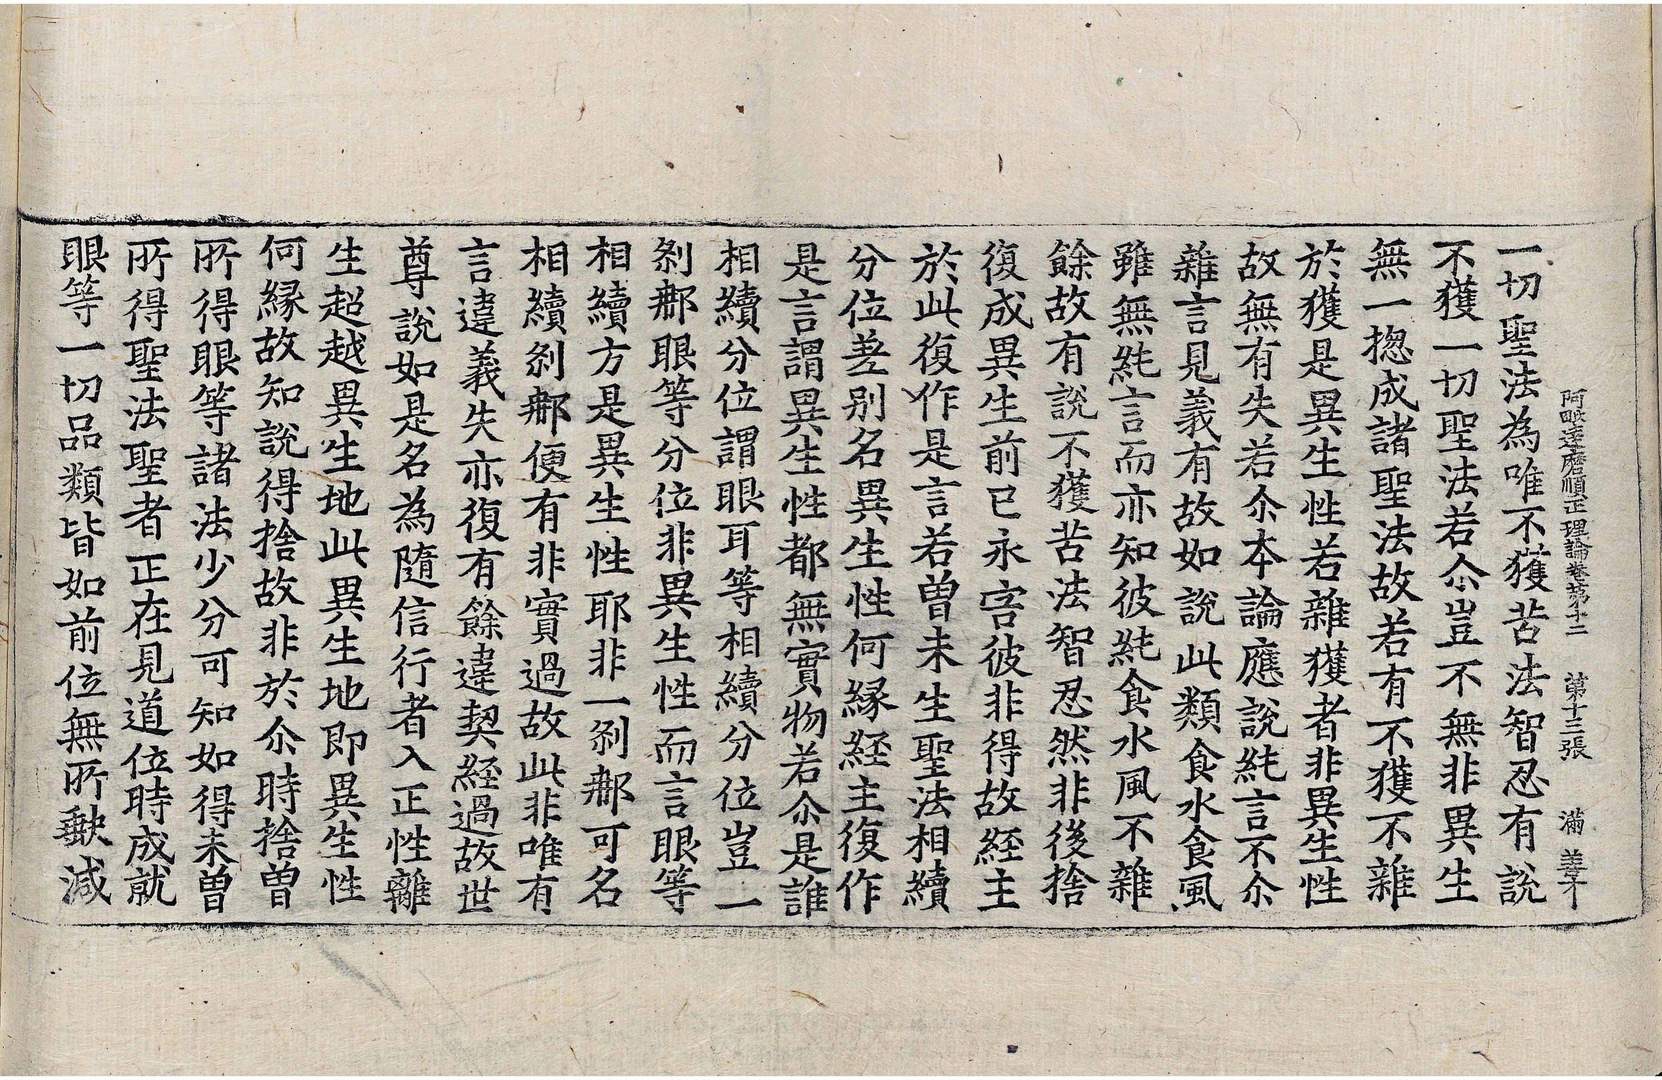 阿毗達磨順正理論卷第十二 第十三張 滿 姜才
一切聖法為唯不獲苦法智忍有說
不獲一切聖法若尒豈不無非異生
無一捴成諸聖法故若有不獲不雜
於獲是異生性若雜獲者非異生性
故無有失若尒本論應說純言不尒
雖言見義有故如說此類食水食風
雖無純言而亦知彼純食水風不雜
餘故有說不獲苦法智忍然非後捨
復成異生前已永害彼非得故経主
於此復作是言若曽未生聖法相續
分位差別名異生性何緣経主復作
是言謂異生性都無實物若尒是誰
相續分位謂眼耳等相續分位豈一
刹郍眼等分位非異生性而言眼等
相續方是異生性耶非一刹郍可名
相續刹郍便有非實過故此非唯有
言違義失亦復有餘違契経過故世
尊說如是名為隨信行者入正性離
生超越異生地此異生地即異生性
何緣故知說得捨故非於尒時捨曽
所得眼等諸法少分可知如得未曽
所得聖法聖者正在見道位時成就
眼等一切品類皆如前位無所缺減